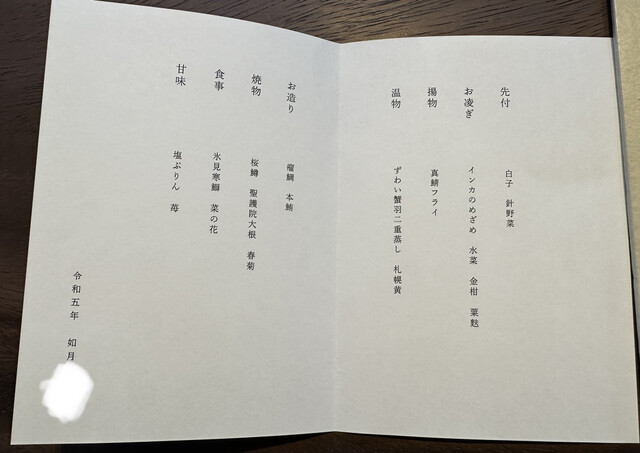 先付
白子 針野菜
お凌ぎ
インカのめざめ 水菜 金柑 粟麩
揚物
真鯖フライ
温物
ずわい蟹羽二重蒸し 札幌黄
お造り
瘤鯛 本鮪
焼物
桜鱒 聖護院大根 春菊
食事
氷見寒鰤 菜の花
甘味
塩ぷりん 苺
令和五年 如月